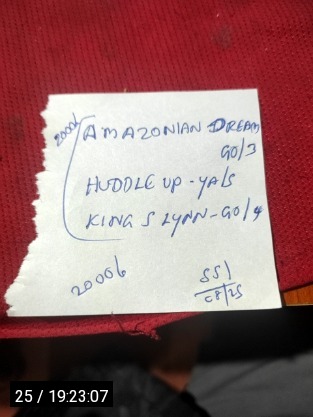 2000/-
AMAZONIAN DREAM
90/3
HUDDLE UP - YA/S
KING S LYNN - 90/4
2000/-
SS1
25 / 19:23:07